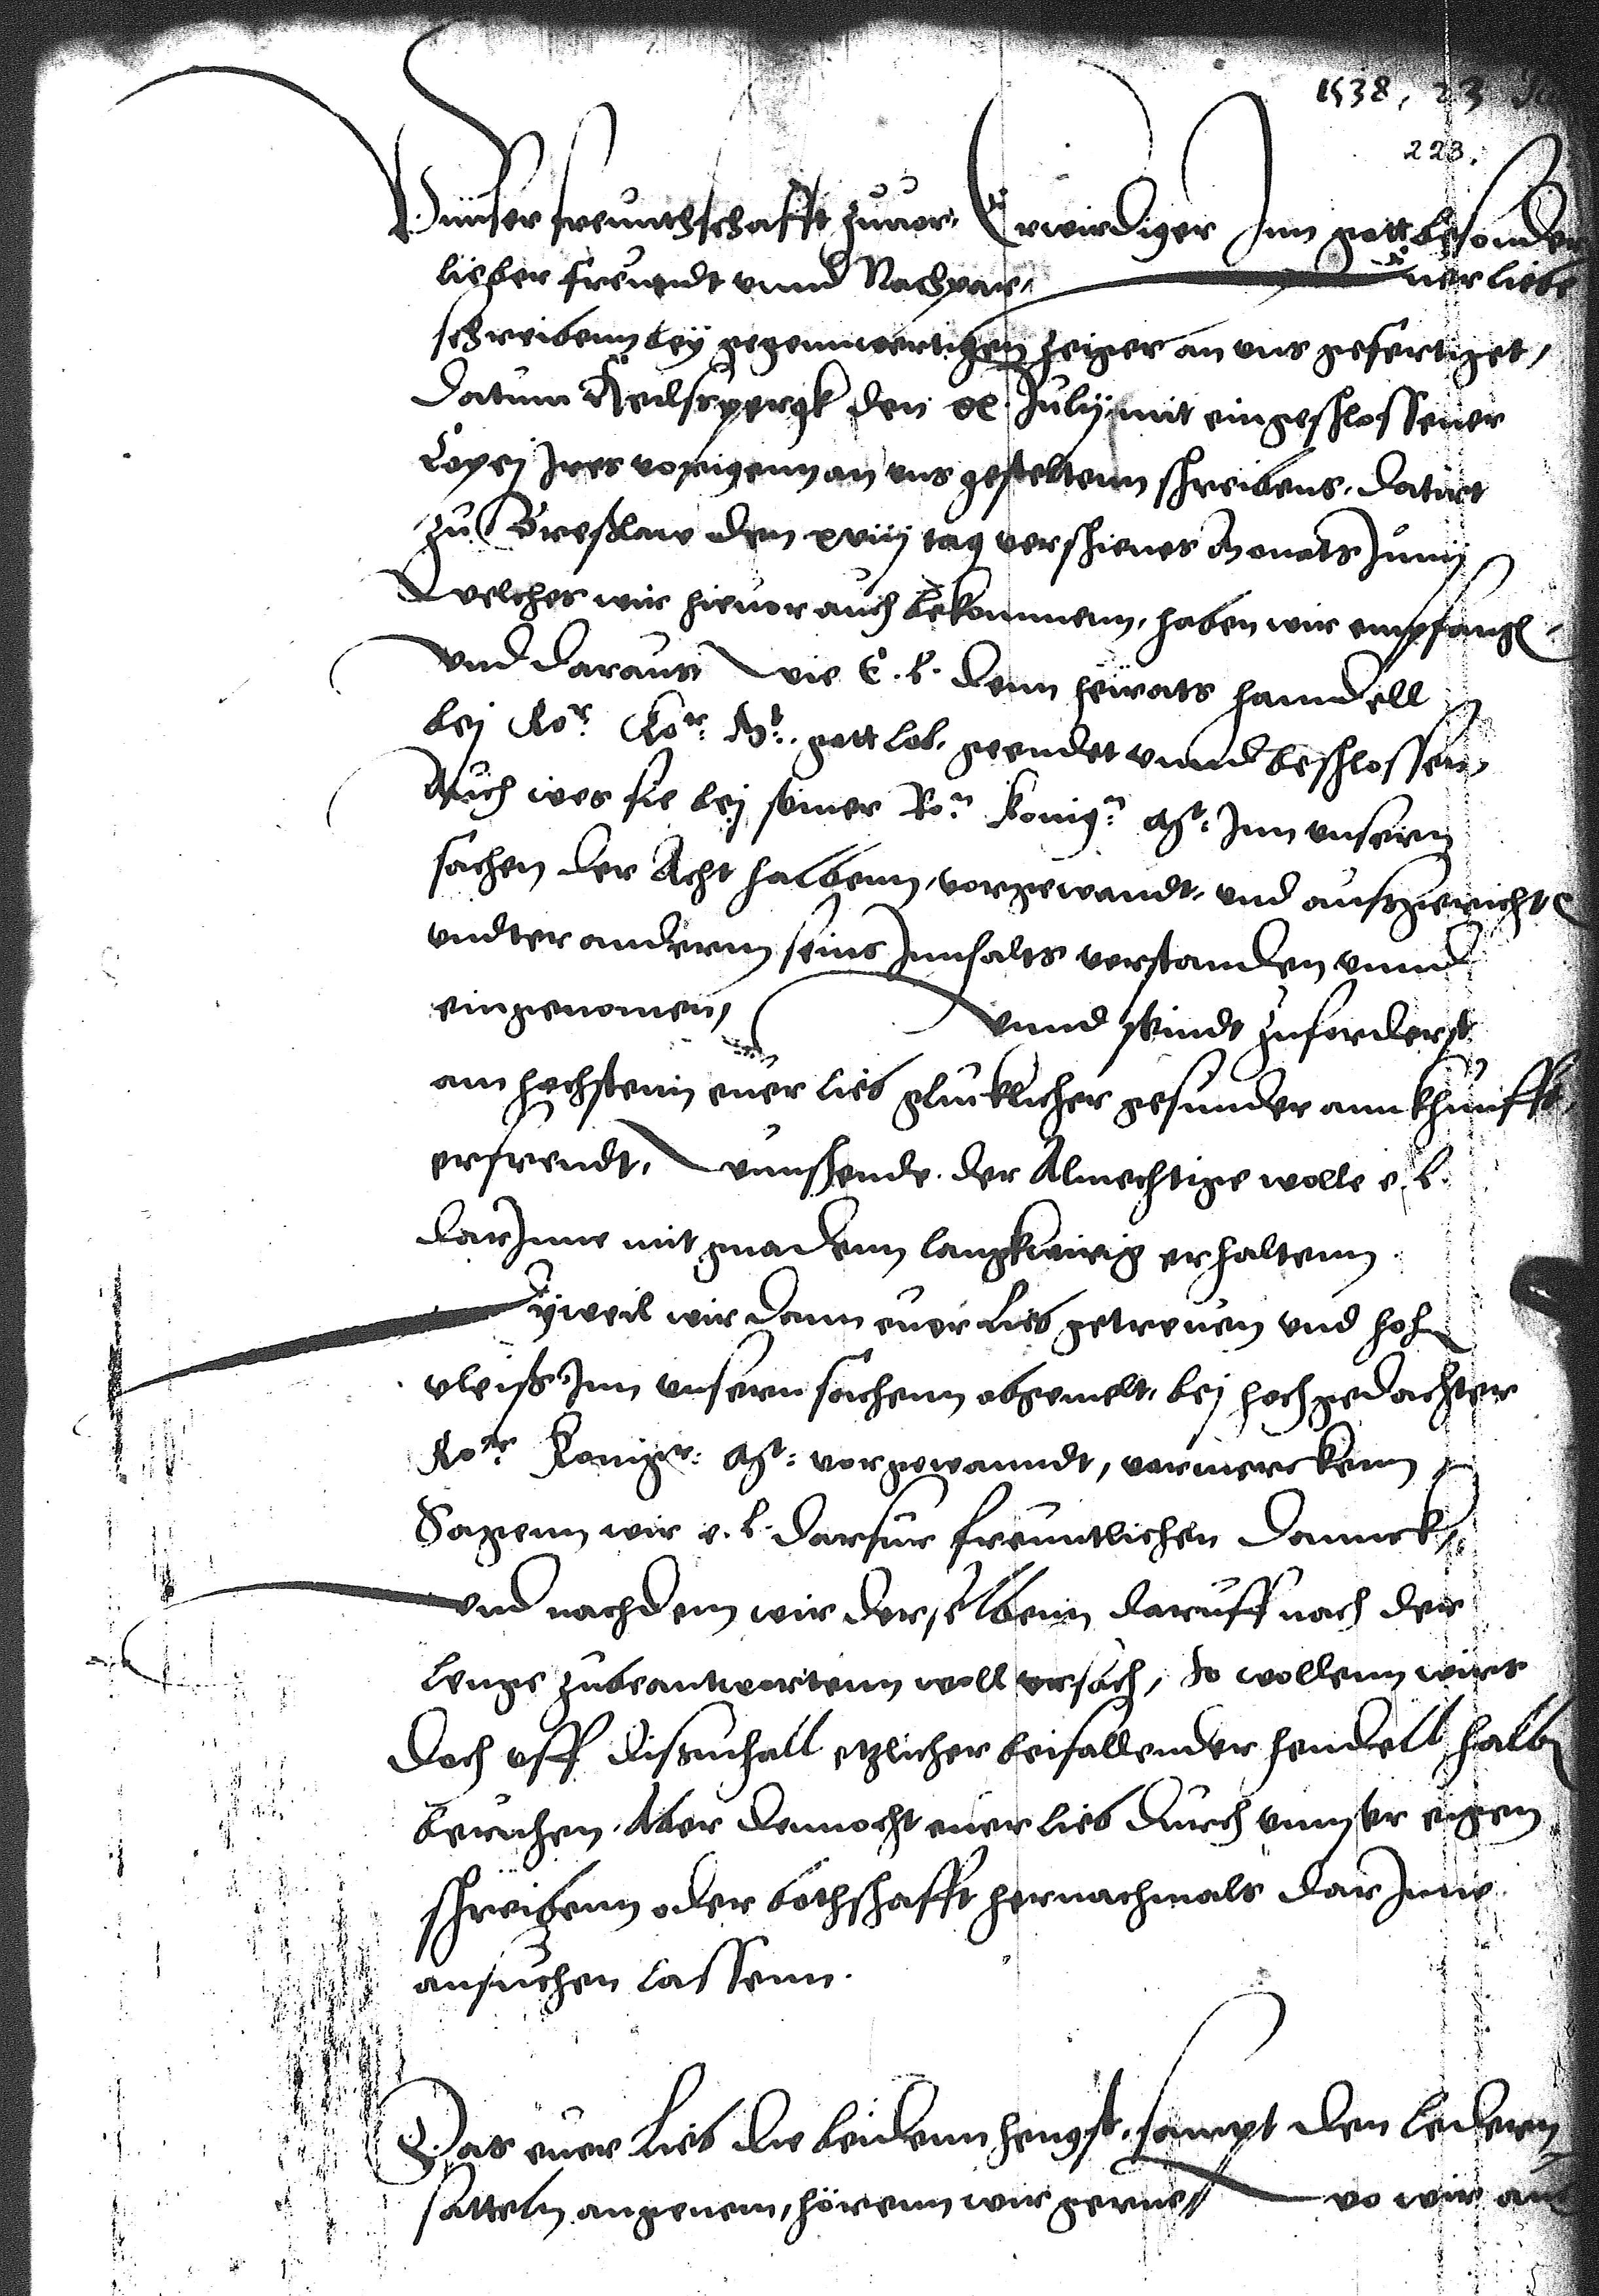 1538, 23
223.
Vnnser freuntschafft zuuor, Erwirdiger Inn gott besonder
lieber freundt vnnd Nachpar, Euer liebe
schreibenn bey gegennwertigen zeiger an vns gefertiget,
datum Heilspergk den xx. Julij mit eingeschlossener
Copey Ires vorigenn an vns gestelltenn schreibens, datirt
zu Breslaw den xviij tag verschienes Monats Junij
Welches wir hieuor auch bekommenn, haben wir empfangen
vnd daraus Wie E. L. denn heirats hanndell
bej Ror. Kor. Mt. gott lob, geendet vnnd beschlossen,
Auch wes sie bej seiner Ror. Konigr. Mt. Inn vnsern
sachen der Acht halbenn, vorgewandt, vnd ausgericht
vndter anderm seins Innhalts verstanden vnnd
eingenomen, Vnnd seindt zuforderst
am hochstenn euer lieb glucklicher gesunder annkhunfft,
erfreudt, Wunschende, der Almechtige wolle e. l.
darInne mit gnadenn langkwirig erhaltenn.
Dyweil wir dann euer lieb getreuen vnd hohen
vleiß Inn vnsern sachenn obgemelt, bej hochgedachter
Ror. Konigr. Mt. vorgewanndt, vermerckenn
Sagenn wir e. l. darfur freuntlichen Dannck,
Vnd nachdem wir derselbenn daruff nach der
lenge zubeantwortenn woll vrsach, So wollenn wirs
doch vff dißmhall etzlicher beifallender hendell halben
beruhen. Aber dennocht euer lieb durch vnnser eigen
schreibenn oder bothschafft hernachmals darInne
ansuchen lassenn.
Das euer Lieb die beidenn hengst, sampt den ledern
satteln angenem, hörenn wir gerne, wo wir an